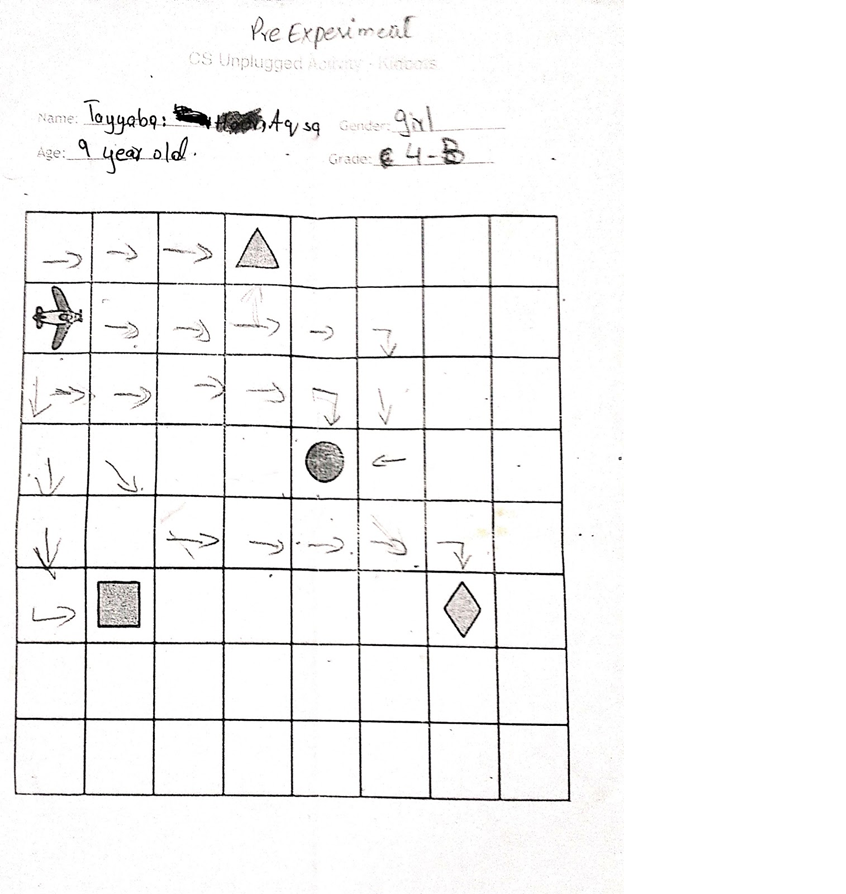 Pre Experiment
CS Unplugged Activity - Kidbots
Name: Tayyaba: Aqsa Gender: girl
Age: 9 year old. Grade: 4-B